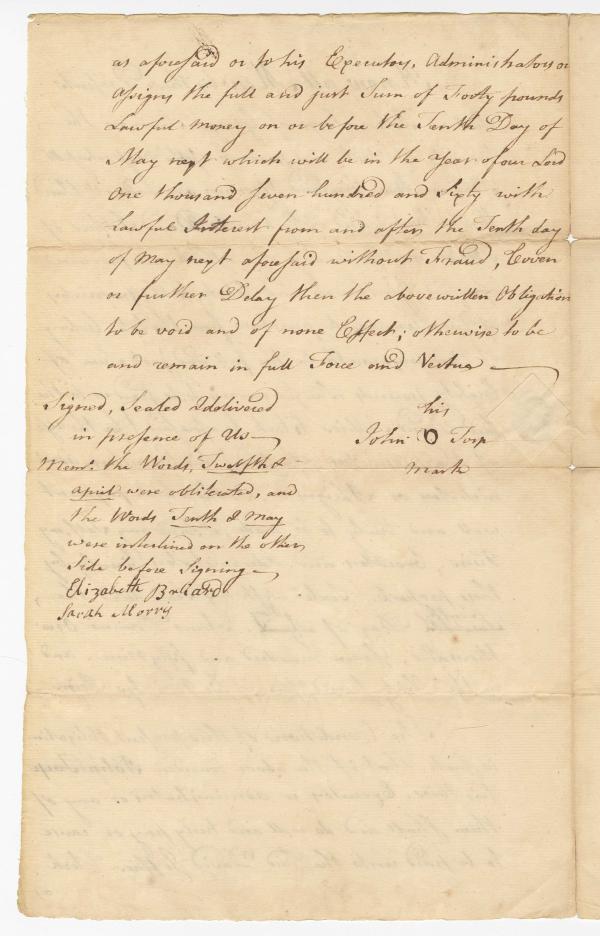 as aforesaid or to his Executors, Administrators or
assigns the full and just Sum of Footy pounds
Lawful Money on or before the Tenth Day of
May next which will be in the Year of our Lord
One thousand seven hundred and Sixty with
Lawful Interest from and after the Tenth day
of May next aforesaid without Fraud, Coven
or further Delay then the above written Obligation
to be void and of none Effect; otherwise to be
and remain in full Force and Vertue
Signed, Sealed & delivered
in presence of Us
his
John O Torp
mark
Memo. the Words, Twelfth &
april were obliterated, and
the Words Tenth & May
were interlined on the other
Side before Signing
Elizabeth
Sarah Morris